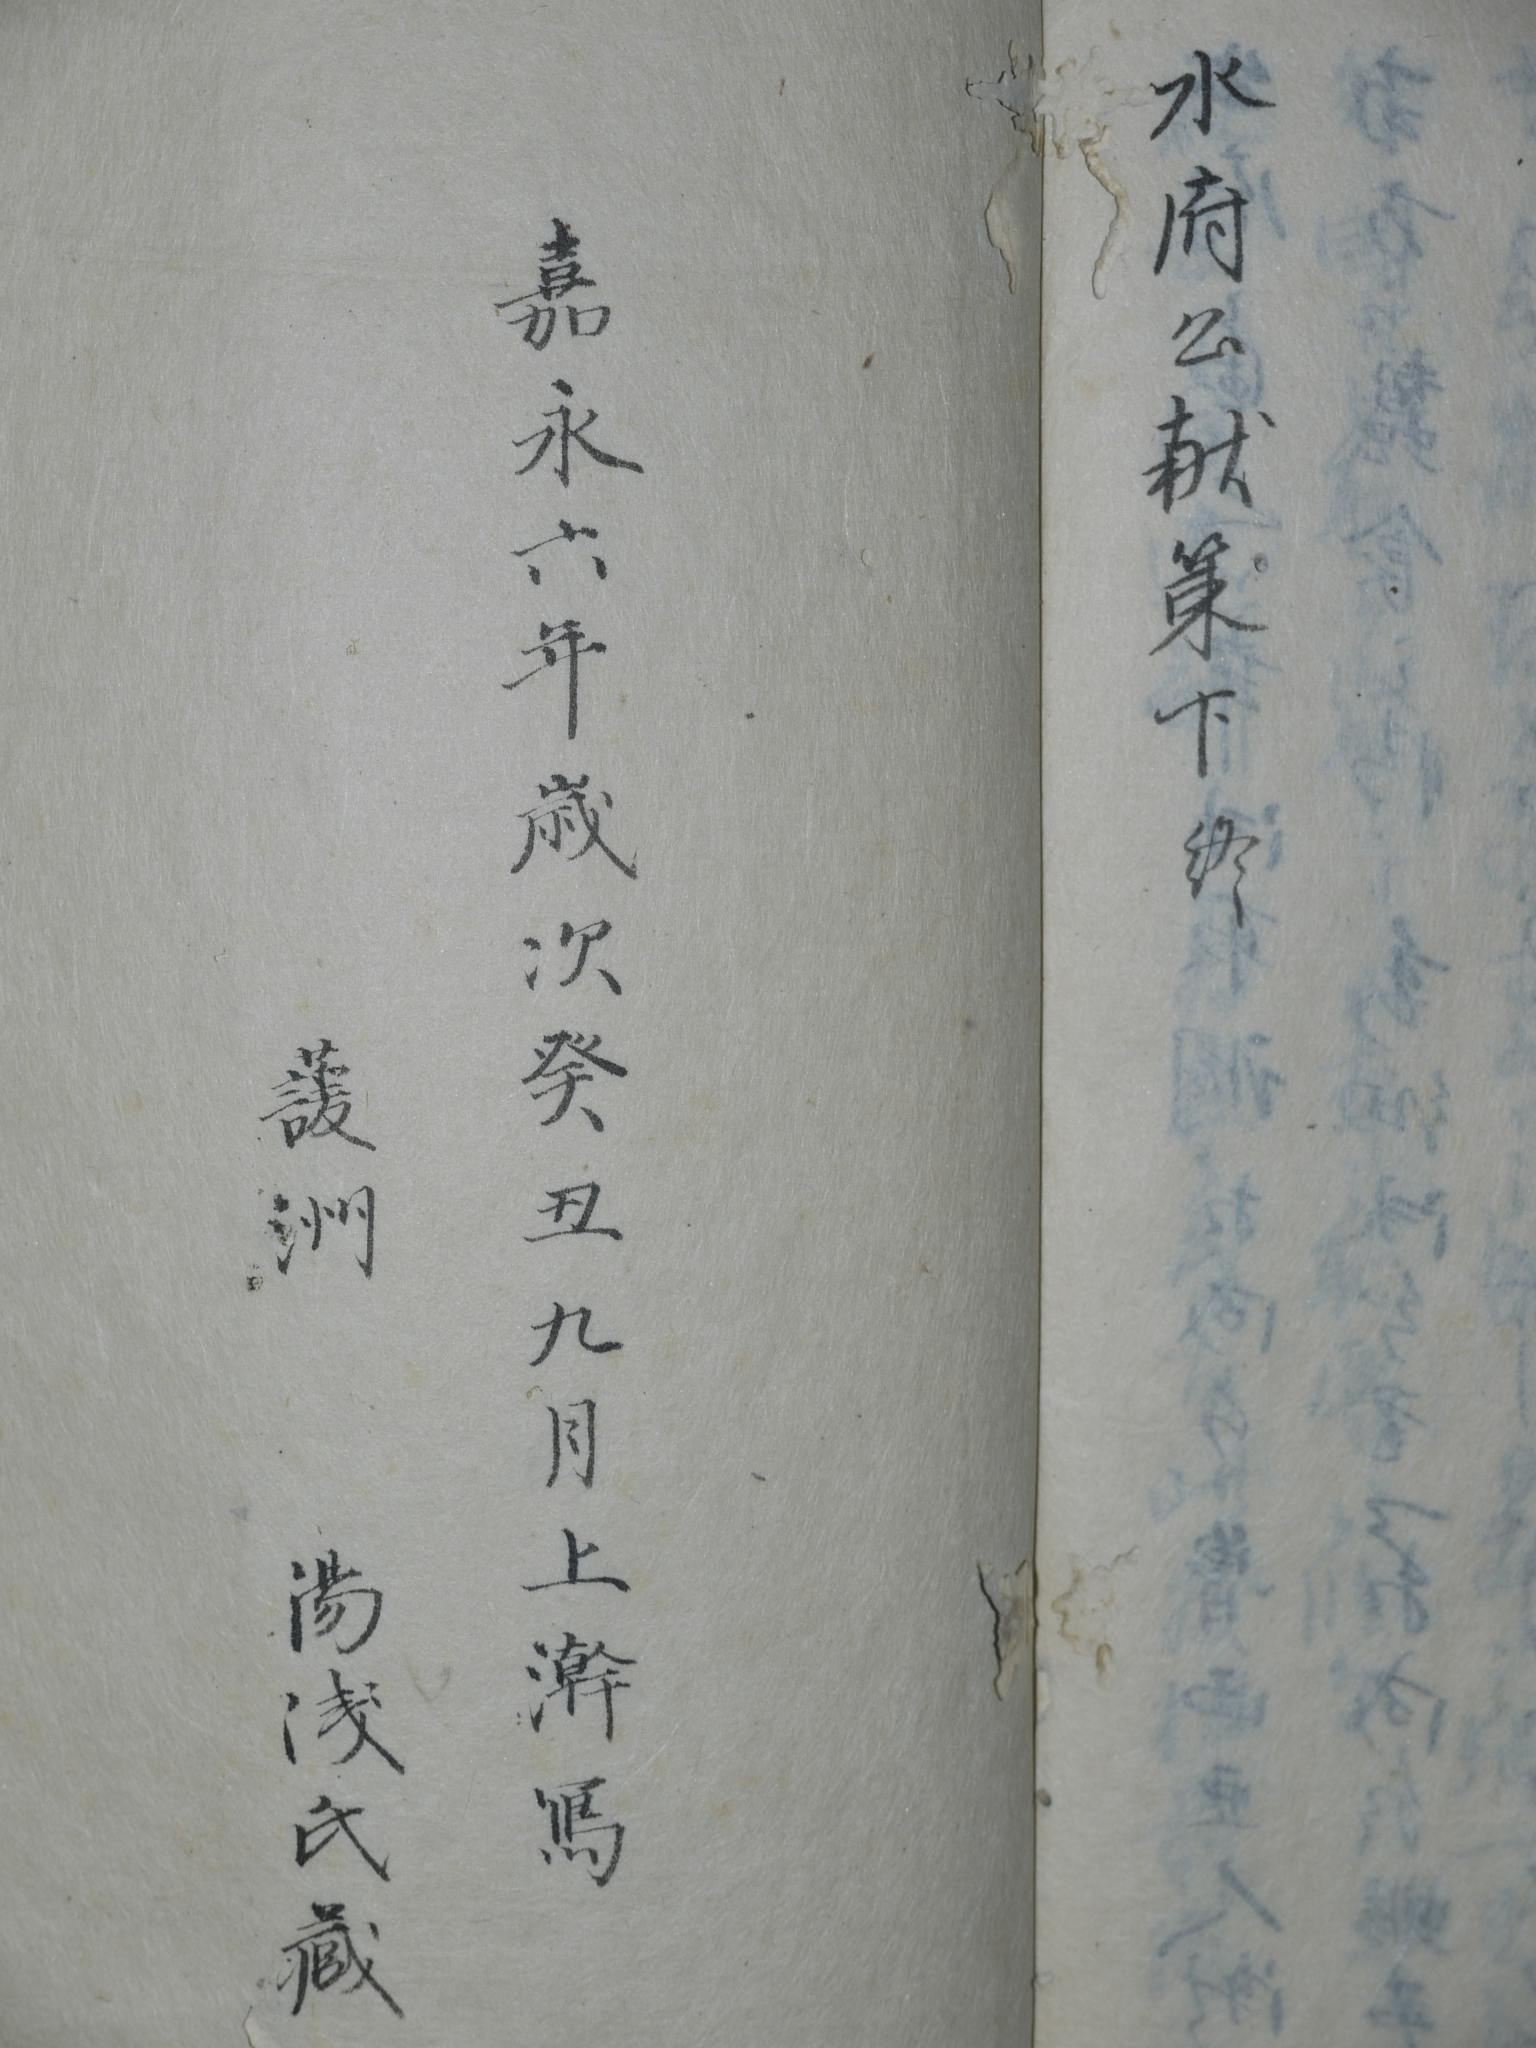 水府公献策下終
嘉永六年歳次癸丑九月上澣寫
洲 湯浅氏藏